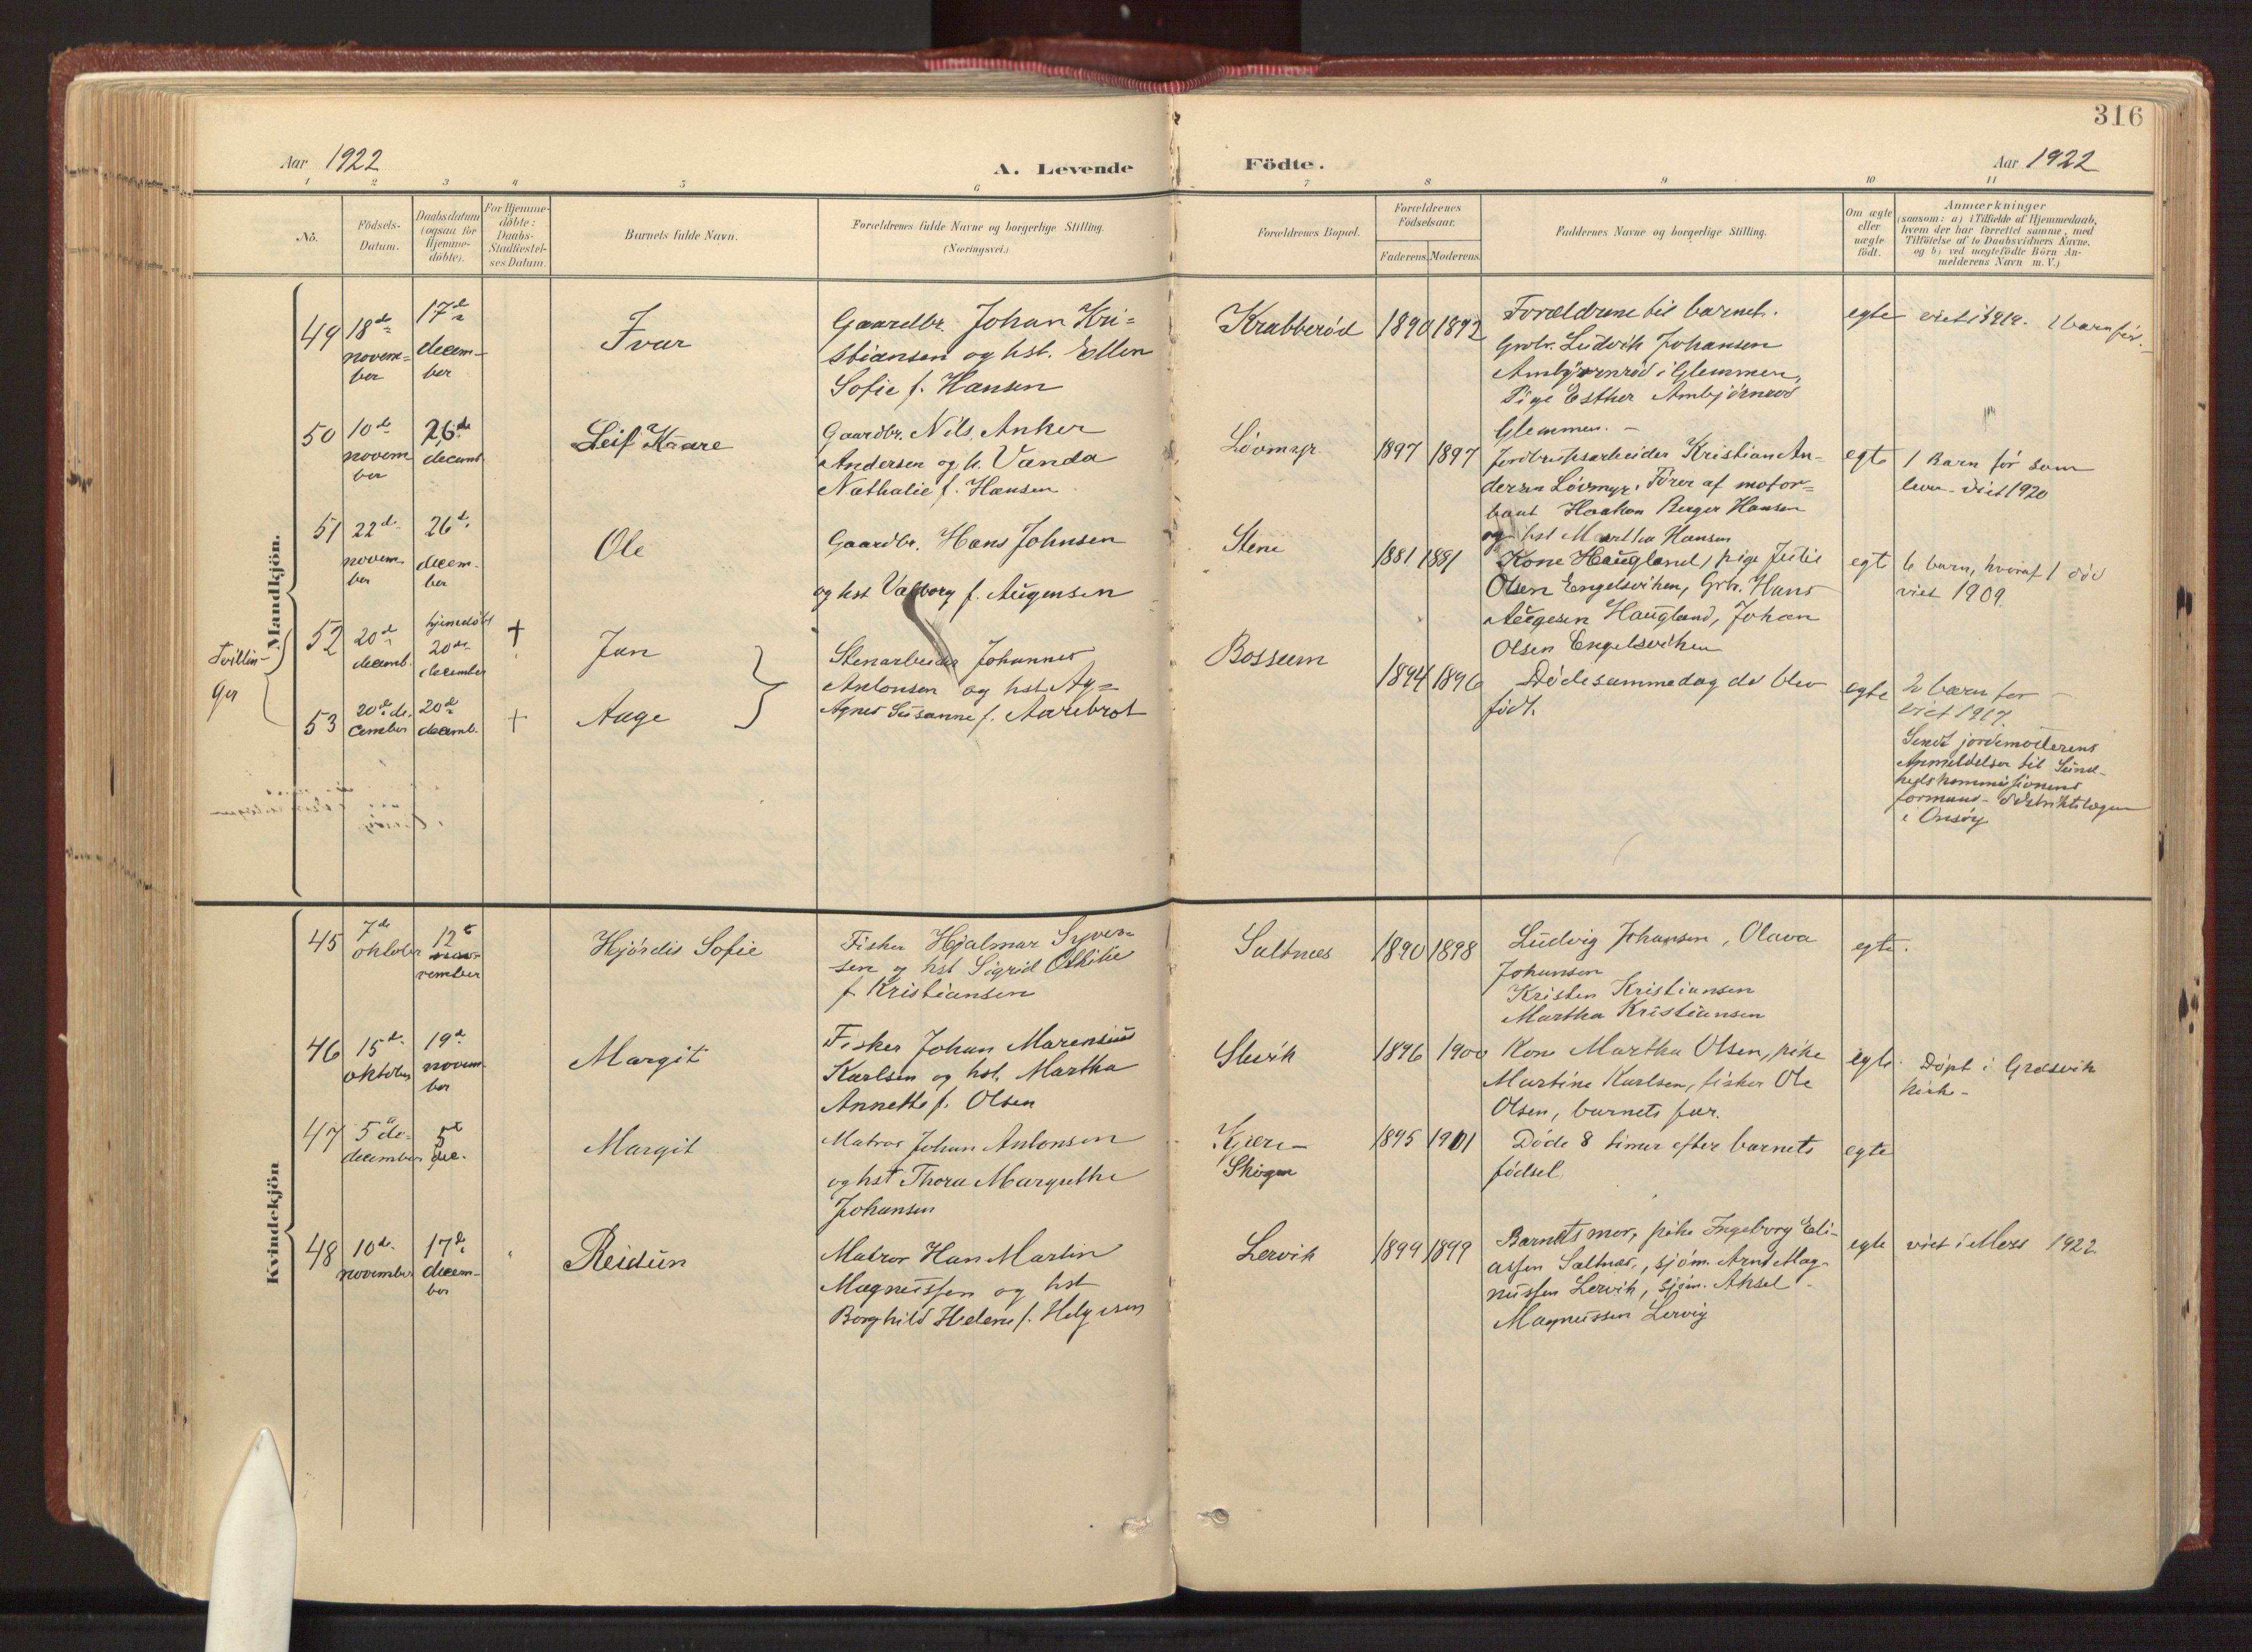 316
Aar 1922
A. Levende
Födte.
Aar 1922
1 2 3 4 5 6 7 8 9 10 11
No.
Födsels-
Datum.
Daabsdatum
(ogsaa for
Hjemme-
döbte).
For Hjemme-
döbte:
Daabs-
Stadfæstel-
ses Datum.
Barnets fulde Navn.
Forældrenes fulde Navne og borgerlige Stilling.
(Næringsvei.)
Forældrenes Bopæl.
Forældrenes
Födselsaar.
Faderens.
Moderens.
Faddernes Navne og borgerlige Stilling.
Om ægte
eller
uægte
födt.
Anmærkninger
(saasom: a) i Tilfælde af Hjemmedaab,
hvem der har forrettet samme, med
Tilföielse af to Daabsvidners Navne,
og b) ved uægtefödte Börn An-
melderens Navn m. V.)
Mandkjön.
49
18de
novem-
ber
17de
decem-
ber
Ivar
Gaardbr. Johan Kri-
stiansen og hst. Ellen
Sofie f. Hansen
Krabberød
1890
1892
Forældrene til barnet.
Grbr. Ludvik Johansen
Ambjørnrød i Glemmen,
Pige Esther Ambjørnrød
Glemmen. -
egte
viet i 1919. 1 barn før.
50
10de
novem
ber
26de
decemb
Leif Kaare
Gaardbr. Nils Anker
Andersen og h. Vanda
Nathalie f. Hansen
Løvmyr
1897
1897
Jordbruksarbeider Kristian An-
dersen Løvmyr, Fører af motor-
baat Haakon Berger Hansen
og hst Martha Hansen
egte
1 Barn før som
lever - viet 1920
51
22de
novem
ber
26de
decem-
ber
Ole
Gaardbr. Hans Johnsen
og hst Valborg f. Augensen
Stene
1881
1881
Kone Haugland, pige Julie
Olsen Engelsviken, Grbr. Hans
Augesen Haugland, Johan
Olsen Engelsviken
egte
6 barn, hvoraf 1 død
viet 1909.
Tvillin-
ger
52
20de
decemb.
hjemedøbt
20de
december
+
Jan
Stenarbeider Johannes
Antonsen og hst. Ag=
Agnes Susanne f. Aarebrot
Bossum
1894
1896
Døde samme dag de blev
født.
egte
2 barn før -
viet 1917.
Sendt jordemoderens
Anmeldelse til Sund-
hedskommissionens
formand - distriktslægen
i Onsøy
53
20de de-
cember
20de
decemb.
+
Aage
Kvindekjön
45
7de
oktober
12te
nov-
vember
Hjørdis Sofie
Fisker Hjalmar Syver-
sen og hst Sigrid Othilie
f Kristiansen
Saltnes
1890
1898
Ludvig Johansen, Olava
Johansen
Kristen Kristiansen
Martha Kristiansen
egte.
46
15de
oktober
19de
novem-
ber
Margit
Fisker Johan Marensius
Karlsen og hst. Martha
Annette f. Olsen
Slevik
1896
1900
Kone Martha Olsen, pike
Martine Karlsen, fisker Ole
Olsen, barnets far.
egte.
Døpt i Græsvik
kirke -
47
5 de-
december
5te
dec.
Margit
Matros Johan Antonsen
og hst Thora Margrethe
Johansen
Kjære-
Skogen
1895
1901
Døde 8 timer efter barnets
fødsel
egte
48
10de
november
17de
decem-
ber
Reidun
Matros Han Martin
Magnussen og hst
Borghild Helene f. Helgesen
Lervik
1899
1899
Barnets mor, pike Ingeborg Eli-
assen Saltnes, sjøm. Arnt Mag-
nussen Lervik, sjøm. Aksel
Magnussen Lervig
egte
viet i Moss 1922